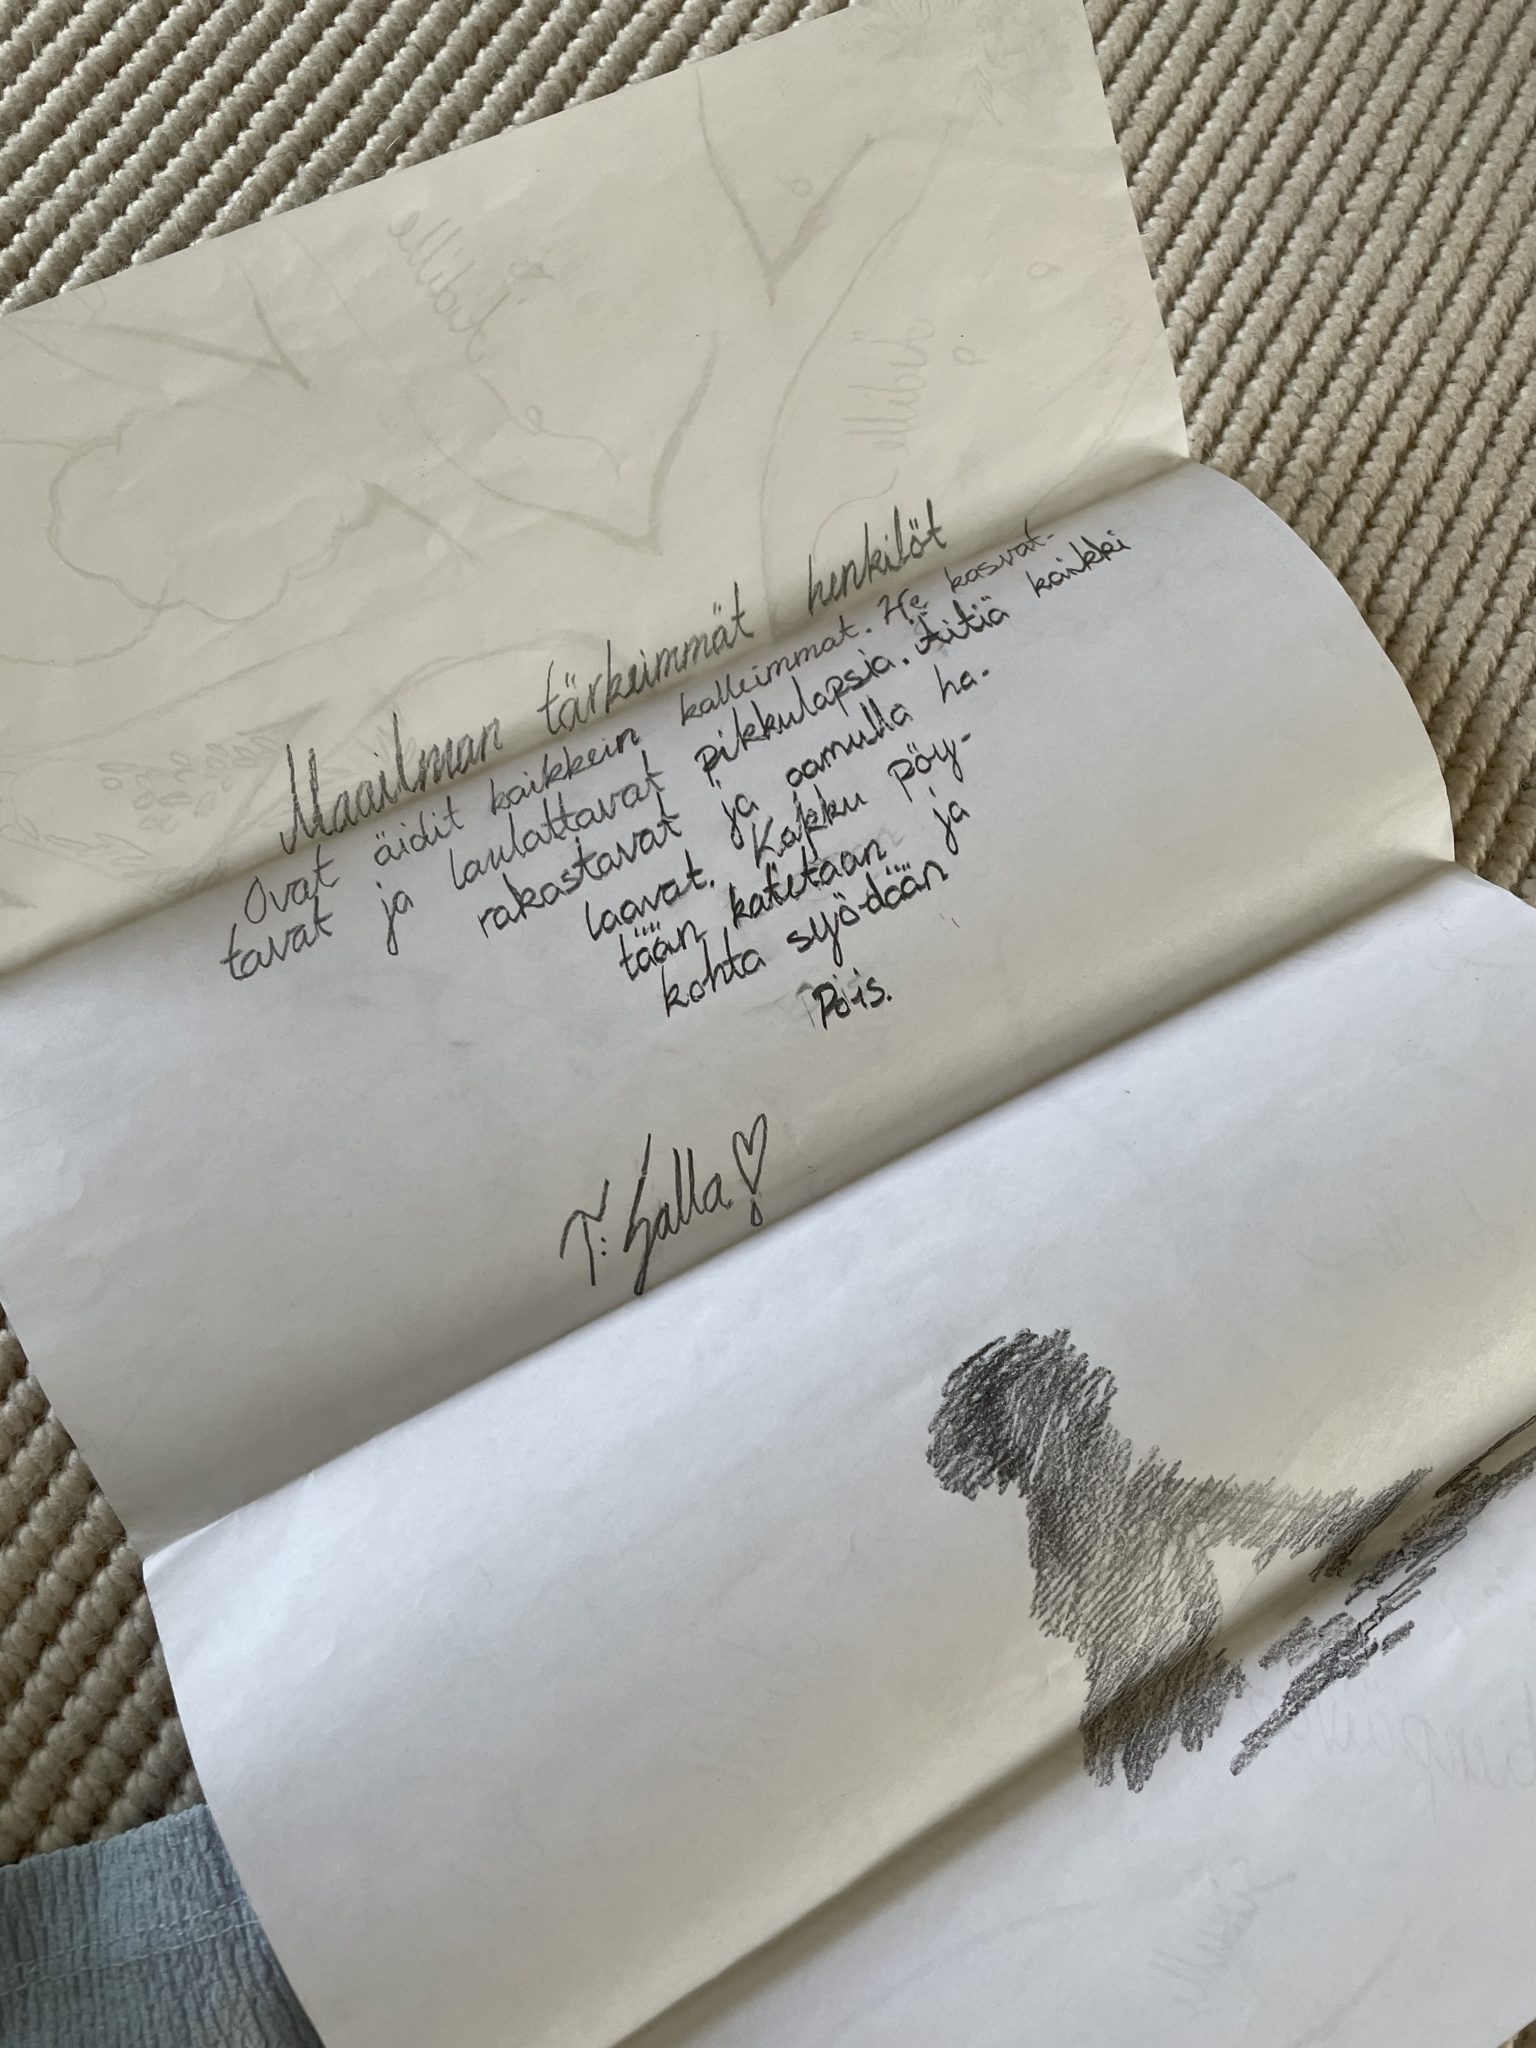 Maailman tärkeimmät henkilöt
Ovat äidit kaikkein kalleimmat. He kasvat-
tavat ja laulattavat pikkulapsia. Äitiä kaikki
rakastavat ja aamulla ha-
laavat. Kakku pöy-
tään katetaan ja
kohta syödään
pois.
T: Salla
Äidille
äidille